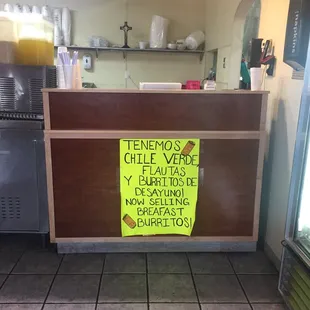 TENEMOS
CHILE VERDE
FLAUTAS
Y BURRITOS DE
DESAYUNO!
NOW SELLING
BREAFAST
BURRITOS!